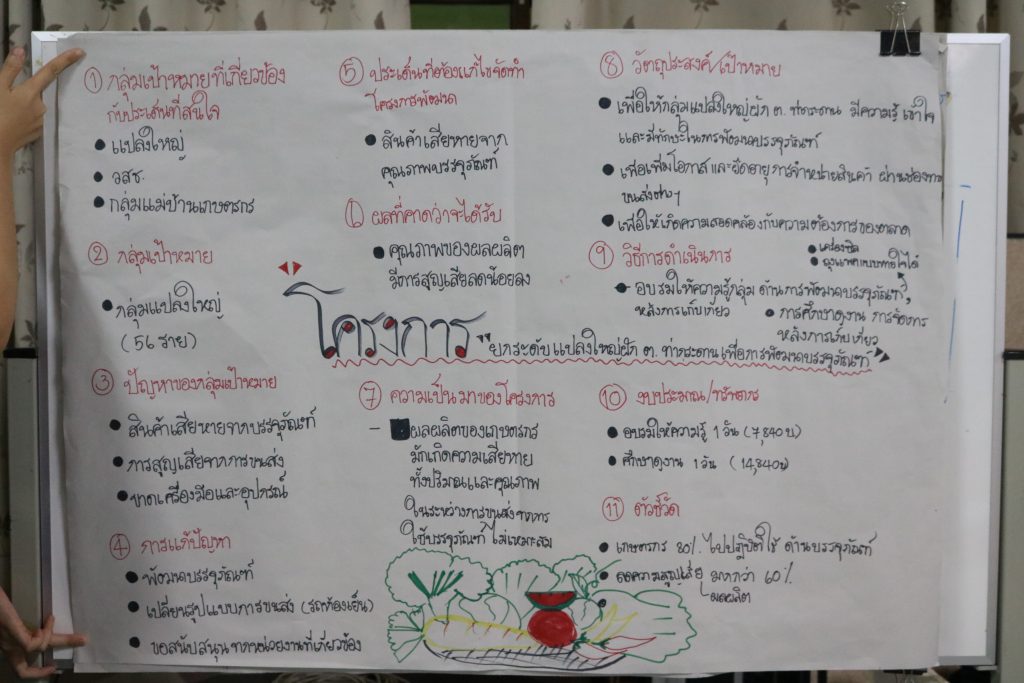 ① กลุ่มเป้าหมายที่เกี่ยวข้อง
กับประเด็นที่สนใจ
● แปลงใหญ่
● วสช.
● กลุ่มแม่บ้านเกษตรกร
② กลุ่มเป้าหมาย
● กลุ่มแปลงใหญ่
(56 ราย)
③ ปัญหาของกลุ่มเป้าหมาย
● สินค้าเสียหายจากบรรจุภัณฑ์
● การสูญเสียจากการขนส่ง
● ขาดเครื่องมือและอุปกรณ์
④ การแก้ปัญหา
● พัฒนาบรรจุภัณฑ์
● เปลี่ยนรูปแบบการขนส่ง (รถห้องเย็น)
● ขอสนับสนุนจากหน่วยงานที่เกี่ยวข้อง
⑤ ประเด็นที่ต้องแก้ไขจัดทำ
โครงการพัฒนา
● สินค้าเสียหายจาก
คุณภาพบรรจุภัณฑ์
⑥ ผลที่คาดว่าจะได้รับ
● คุณภาพของผลผลิต
มีการสูญเสียลดน้อยลง
โครงการ
"ยกระดับแปลงใหญ่ผัก ต. ท่ากระดานเพื่อการพัฒนาบรรจุภัณฑ์"
⑦ ความเป็นมาของโครงการ
- ผลผลิตของเกษตรกร
มักเกิดความเสียหาย
ทั้งปริมาณและคุณภาพ
ในระหว่างการขนส่งจากการ
ใช้บรรจุภัณฑ์ไม่เหมาะสม
⑧ วัตถุประสงค์/เป้าหมาย
● เพื่อให้กลุ่มแปลงใหญ่ผัก ต. ท่ากระดาน มีความรู้ เข้าใจ
และมีทักษะในการพัฒนาบรรจุภัณฑ์
● เพื่อเพิ่มโอกาส และยืดอายุการจำหน่ายสินค้า ผ่านช่องทาง
ขนส่งต่างๆ
● เพื่อให้เกิดความสอดคล้องกับความต้องการของตลาด
⑨ วิธีการดำเนินการ
● เครื่องซีล
● ถุงแพคแบบหายใจได้
- อบรมให้ความรู้กลุ่ม ด้านการพัฒนาบรรจุภัณฑ์,
หลังการเก็บเกี่ยว
● การศึกษาดูงาน การจัดการ
หลังการเก็บเกี่ยว
⑩ งบประมาณ/ทรัพยากร
● อบรมให้ความรู้ 1 วัน (7,840 บ)
● ศึกษาดูงาน 1 วัน (14,840บ)
⑪ ตัวชี้วัด
● เกษตรกร 80% ไปปฏิบัติใช้ ด้านบรรจุภัณฑ์
● ลดความสูญเสีย มากกว่า 60%
ผลผลิต